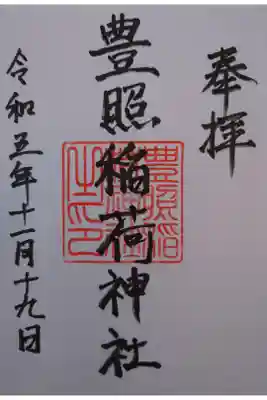 奉拝
豊照稲荷神社
令和五年十一月十九日